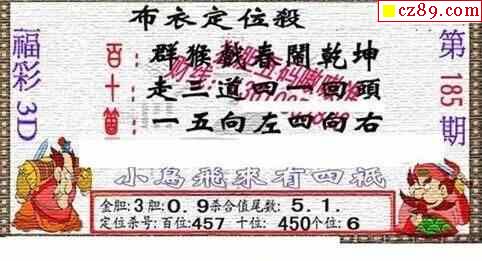 cz89.com
布衣定位殺
福彩3D
百十個
群猴戲春鬧乾坤
走三道四一回頭
一五向左四向右
第185期
小鳥飛來有四祇
金胆:3胆:0.9杀合值尾数:5.1.
定位杀号:百位:457 十位:450个位:6